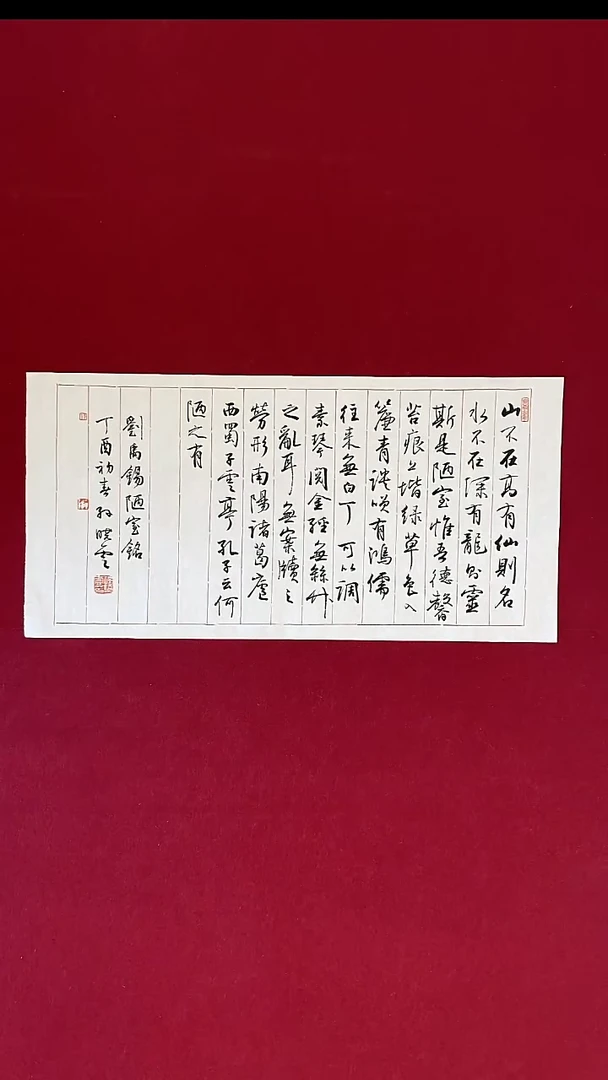 山不在高有仙則名
水不在深有龍則靈
斯是陋室惟吾德馨
苔痕上堦綠草色入
簾青談笑有鴻儒
往來無白丁可以調
素琴閱金經無絲竹
之亂耳無案牘之
勞形南陽諸葛廬
西蜀子雲亭孔子云何
陋之有
劉禹錫陋室銘
丁酉初春孫曉雲